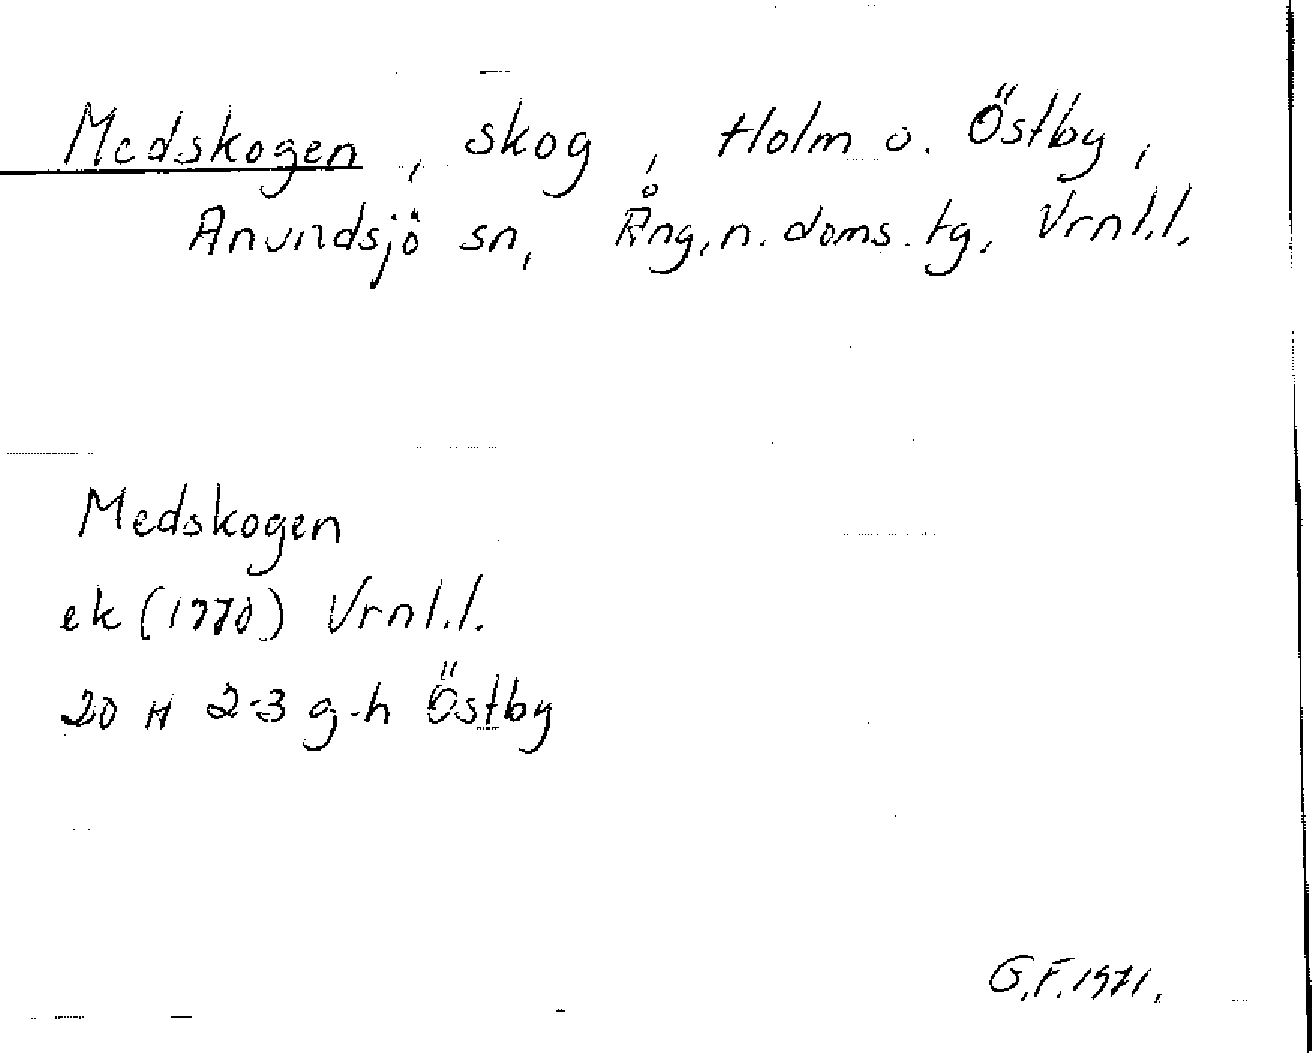 Medskogen, skog, Holm o. Östby,
Anundsjö sn, Ång. n. doms. tg, Vrnl.l.
Medskogen
ek (1970) Vrnl.l.
20 H 2-3 g-h Östby
G.F. 1971.